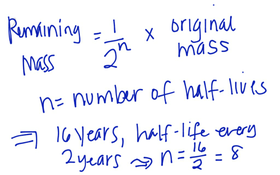 Remaining Mass = 1/2^n × original mass
n = number of half-lives
⇒ 16 years, half-life every
2 years ⇒ n = 16/2 = 8